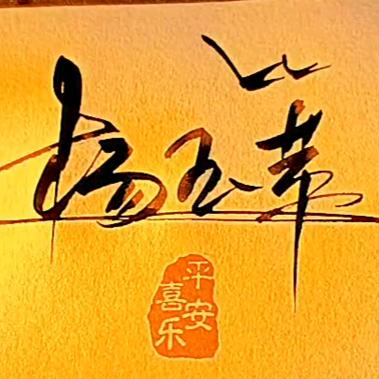 杨玉
平安
喜乐